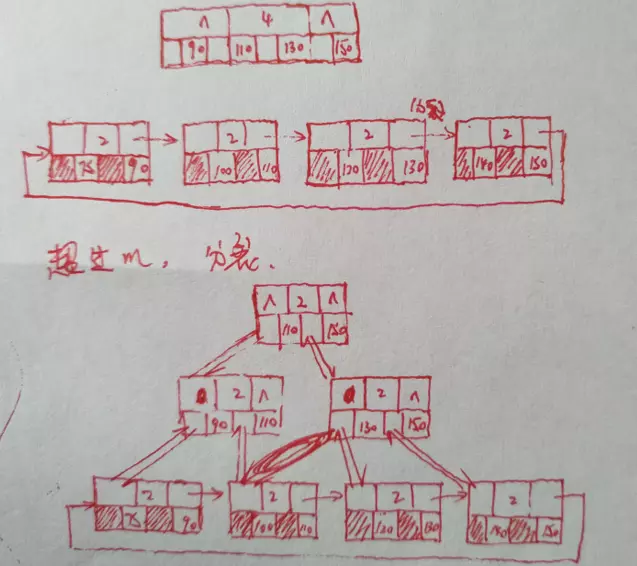 ∧ 4 ∧
90 110 130 150
2 2 2 2
75 90 100 110 120 130 140 150
超过m，分裂.
∧ 2 ∧
110 150
2 ∧ 2 ∧
90 110 130 150
2 2 2 2
75 90 100 110 120 130 140 150